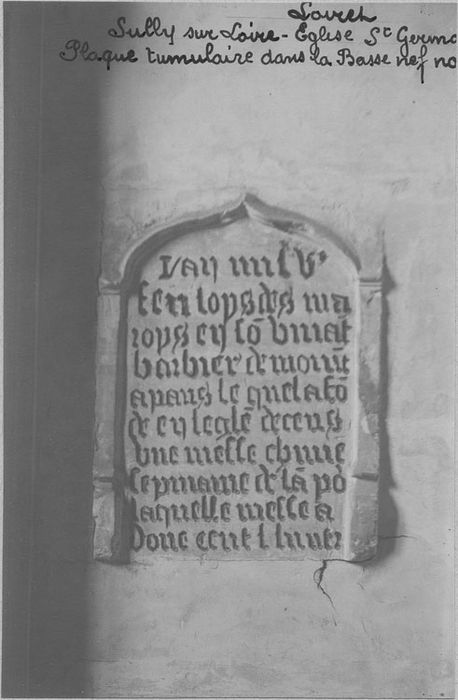 Loiret
Sully sur Loire - Eglise St Germ
Plaque tumulaire dans la Basse nef no
lan mil vᶜ
tops des ma
rops en sō vivāt
barbier demorāt
a paris le quel a fō
de en leglē de cens
vne messe chūne
sepmaine de lā pō
laquelle messe a
done cent l